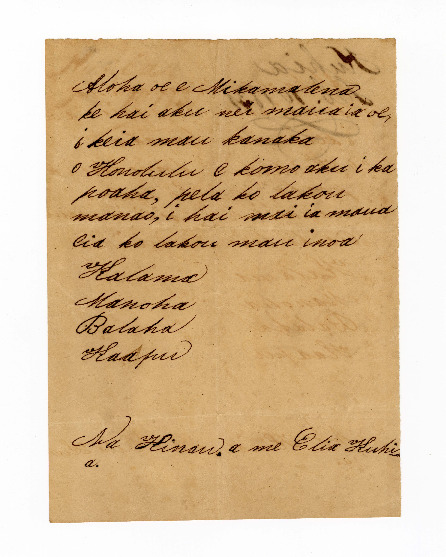 Aloha oe e Mikamalena
ke hai aku nei maua ia oe,
i keia mau kanaka
o Honolulu e komo aku i ka
poaha, pela ko lakou
manao, i hai mai ia maua
eia ko lakou mau inoa
Kalama
Manoha
Balaha
Kaapu
Na Hinau. a me Elia Kuhi
a.